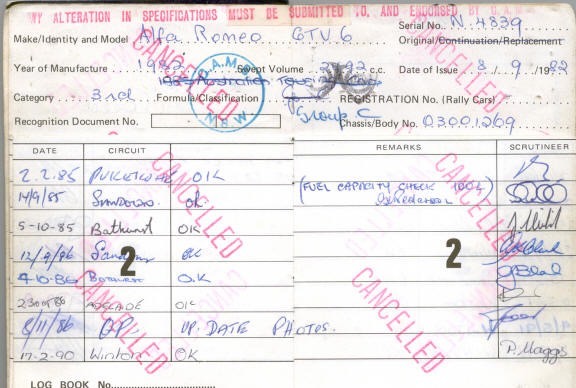 ANY ALTERATION IN SPECIFICATIONS MUST BE SUBMITTED TO, AND ENDORSED BY C.A.M.S.
Serial No. N.4839
Make/Identity and Model Alfa Romeo GTV6 Original/Continuation/Replacement
Year of Manufacture 1982 Swept Volume 2492 c.c. Date of Issue 8/9/1982
Category 3rd Formula/Classification Group C REGISTRATION No. (Rally Cars)
Recognition Document No. Chassis/Body No. 03001269
C.A.M.S. N.S.W.
DATE CIRCUIT REMARKS SCRUTINEER
2.2.85 PUKEKOHE OIK
14/9/85 SANDOWN OK (FUEL CAPACITY CHECK 100L)
5-10-85 Bathurst OIK
12/9/86 Sandown OK
4-10-86 BATHURST O.K
23 OCT 86 ADELAIDE OK
8/11/86 GP UP. DATE PHOTOS.
17-2-90 Winton OK P. Maggs
2 2
CANCELLED
CANCELLED
CANCELLED
CANCELLED
CANCELLED
CANCELLED
LOG BOOK No.